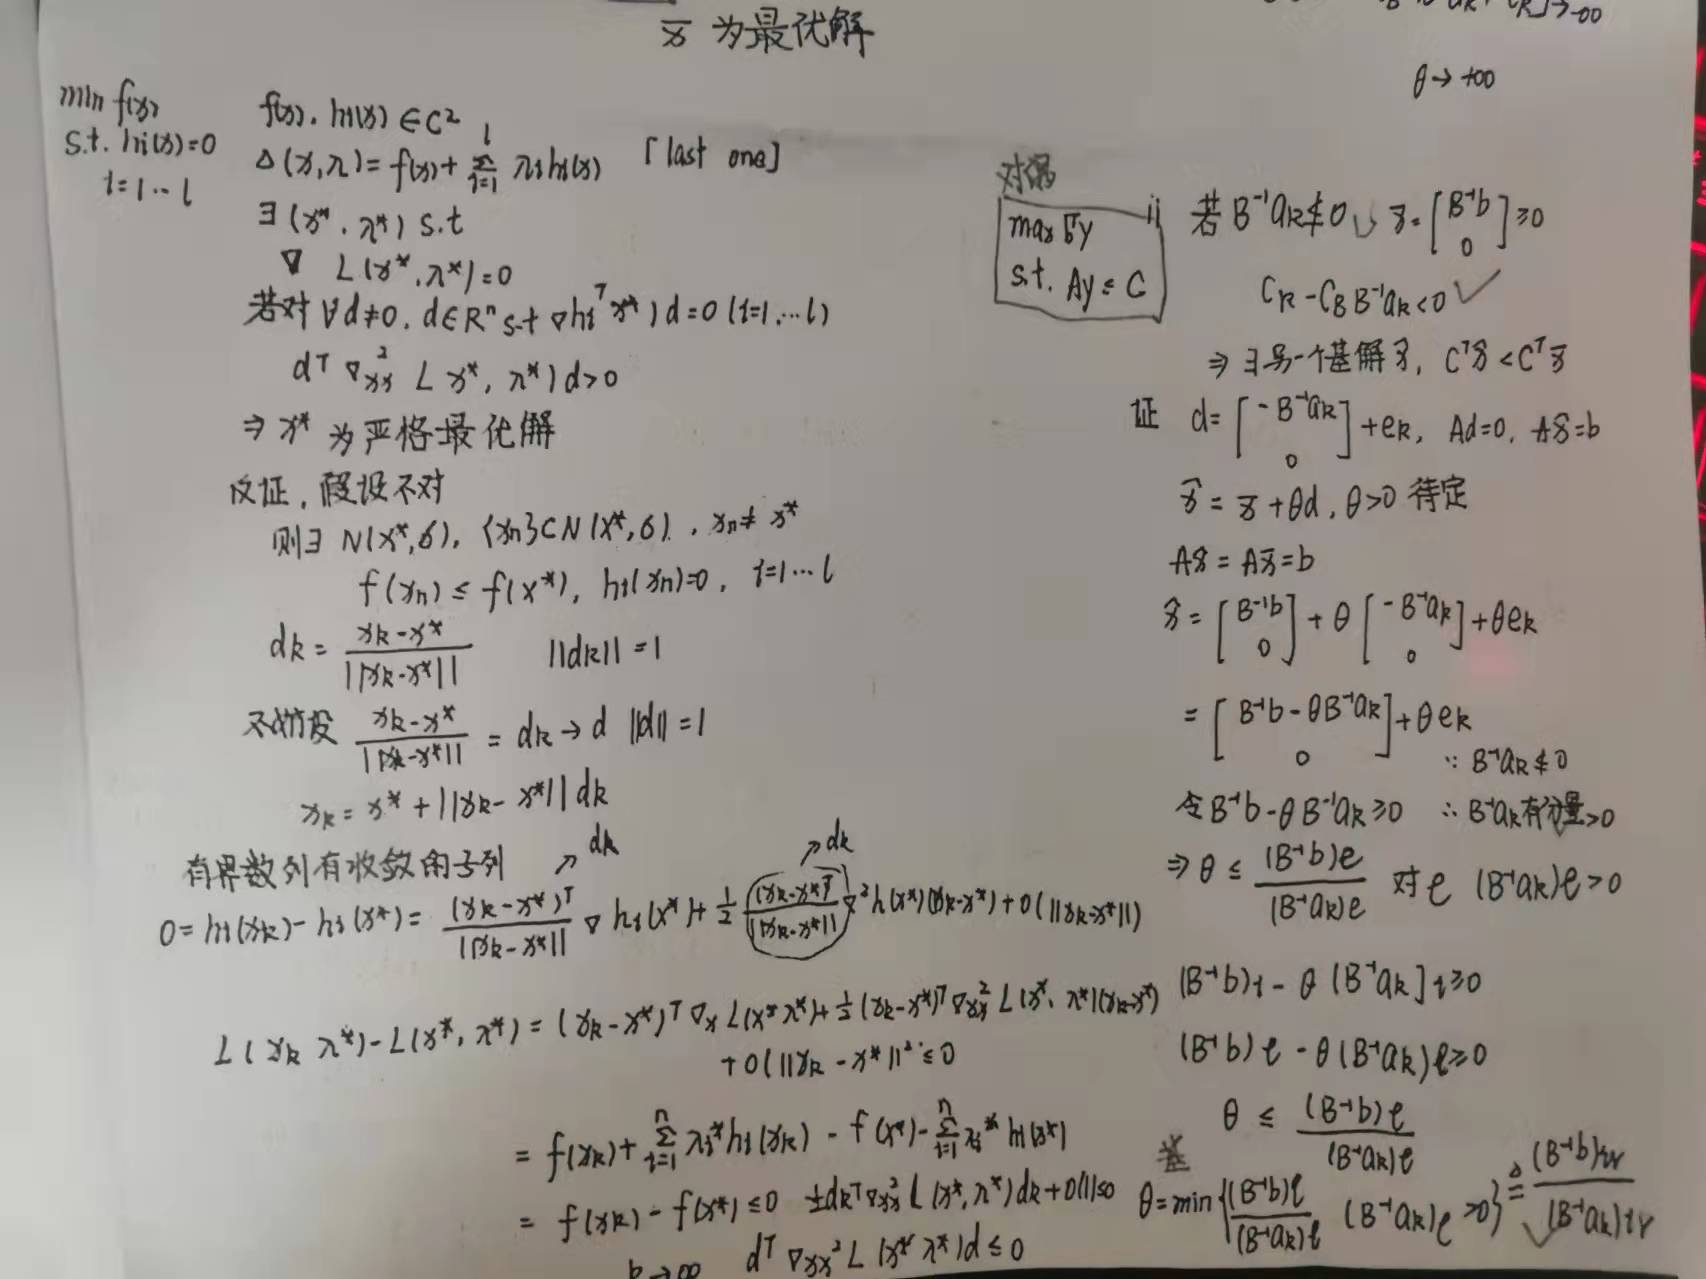 x̄ 为最优解
min f(x)
s.t. hi(x)=0
i=1…l
f(x), hi(x) ∈ C²
Δ(x,λ)=f(x)+ Σ_{i=1}^{l} λi hi(x) 「last one]
∃ (x*, λ*) s.t
∇ L(x*, λ*)=0
若对 ∀d≠0, d∈Rⁿ s.t ∇hi^T x*) d=0 (i=1,…l)
d^T ∇²xx L x*, λ*) d>0
⇒ x* 为严格最优解
反证, 假设不对
则∃ N(x*,δ), {xn}⊂N(x*,δ), xn≠x*
f(xn) ≤ f(x*), hi(xn)=0, i=1…l
dk = (xk-x*)/||xk-x*||  ||dk||=1
不妨设 (xk-x*)/||xk-x*|| = dk→d ||d||=1
xk = x* + ||xk-x*|| dk
有界数列有收敛的子列 ↗dk ↗dk
0=hi(xk)-hi(x*)= (xk-x*)^T/||xk-x*|| ∇hi(x*)+ 1/2 (xk-x*)^T/||xk-x*|| ∇²h(x*)(xk-x*)+o(||xk-x*||)
L(xk λ*)-L(x*, λ*) = (xk-x*)^T ∇x L(x* λ*)+1/2 (xk-x*)^T ∇²xx L(x*, λ*)(xk-x*)
+o(||xk-x*||² ≤0
= f(xk)+ Σ_{i=1}^{n} λi* hi(xk) - f(x*)- Σ_{i=1}^{n} λi* hi(x*)
= f(xk)-f(x*) ≤0 1/2 dk^T ∇²xx L(x*, λ*) dk+o(1)≤0
k→∞ d^T ∇xx² L(x* λ*)d ≤0
→-∞
θ→+∞
对偶
max b^T y
s.t. Ay ≤ C
ii 若 B⁻¹ak≰0 ✓ x̄=[B⁻¹b 0] ≥0
Ck-CB B⁻¹ak<0 ✓
⇒ ∃另一个基解 x̂, C^T x̂ < C^T x̄
证 d=[-B⁻¹ak 0]+ek, Ad=0, Ax̂=b
x̂ = x̄ +θd, θ>0 待定
Ax̂ = Ax̄=b
x̂=[B⁻¹b 0]+θ[-B⁻¹ak 0]+θek
=[B⁻¹b-θB⁻¹ak 0]+θek
∵ B⁻¹ak≰0
令B⁻¹b-θB⁻¹ak≥0 ∴ B⁻¹ak有分量>0
⇒ θ ≤ (B⁻¹b)ℓ/(B⁻¹ak)ℓ 对ℓ (B⁻¹ak)ℓ>0
(B⁻¹b)i - θ (B⁻¹ak]i≥0
(B⁻¹b)ℓ - θ(B⁻¹ak)ℓ≥0
θ ≤ (B⁻¹b)ℓ/(B⁻¹ak)ℓ
θ=min{(B⁻¹b)ℓ/(B⁻¹ak)ℓ (B⁻¹ak)ℓ>0} ≜ (B⁻¹b)r/(B⁻¹ak)r